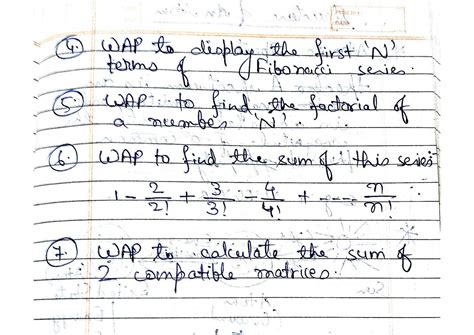 4. WAP to display the first 'N'
terms of Fibonacci series.
5. WAP to find the factorial of
a number 'N'.
6. WAP to find the sum of this series
1 - 2/2! + 3/3! - 4/4! + ---- n/n!
7. WAP to calculate the sum of
2 compatible matrices.